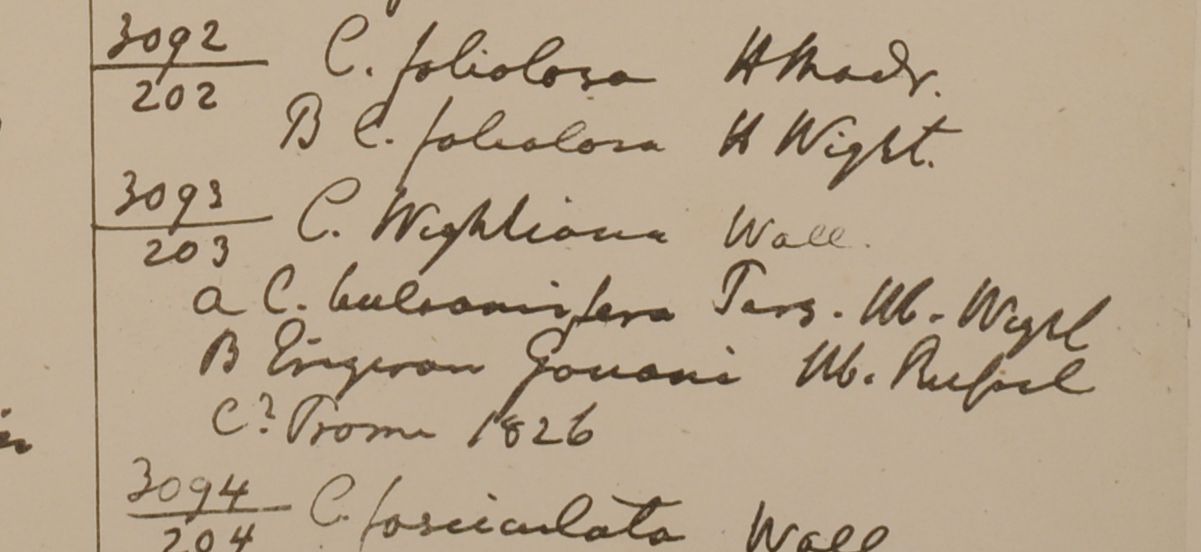 3092
202
C. foliolosa H Madr.
B C. foliolosa H Wight.
3093
203
C. Wightiana Wall.
a C. balsamifera Hb. Wight
B Erigeron Gouani Hb.
C? Prome 1826
3094
204
C. fasciculata Wall